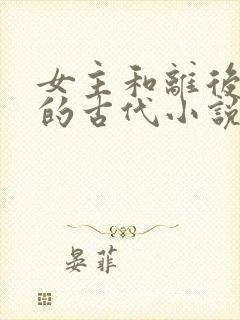 女主和離後
的古代小說
晏菲